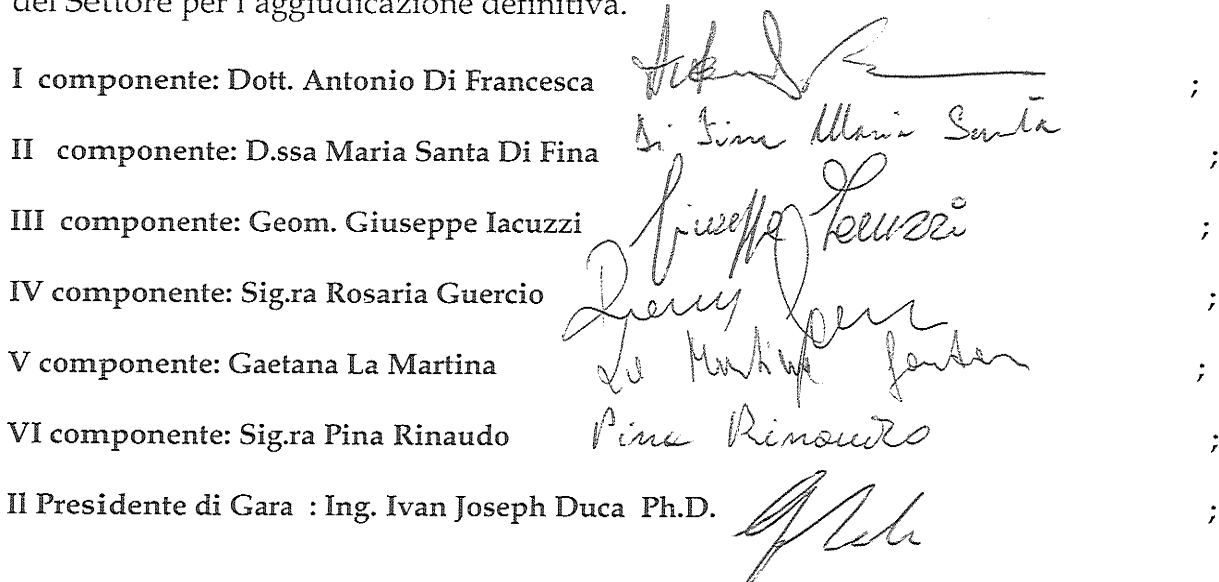 del Settore per l'aggiudicazione definitiva.
I componente: Dott. Antonio Di Francesca ;
Di Fina Maria Santa
II componente: D.ssa Maria Santa Di Fina ;
III componente: Geom. Giuseppe Iacuzzi Giuseppe Iacuzzi ;
IV componente: Sig.ra Rosaria Guercio ;
V componente: Gaetana La Martina La Martina ;
VI componente: Sig.ra Pina Rinaudo Pina Rinaudo ;
Il Presidente di Gara : Ing. Ivan Joseph Duca Ph.D. ;